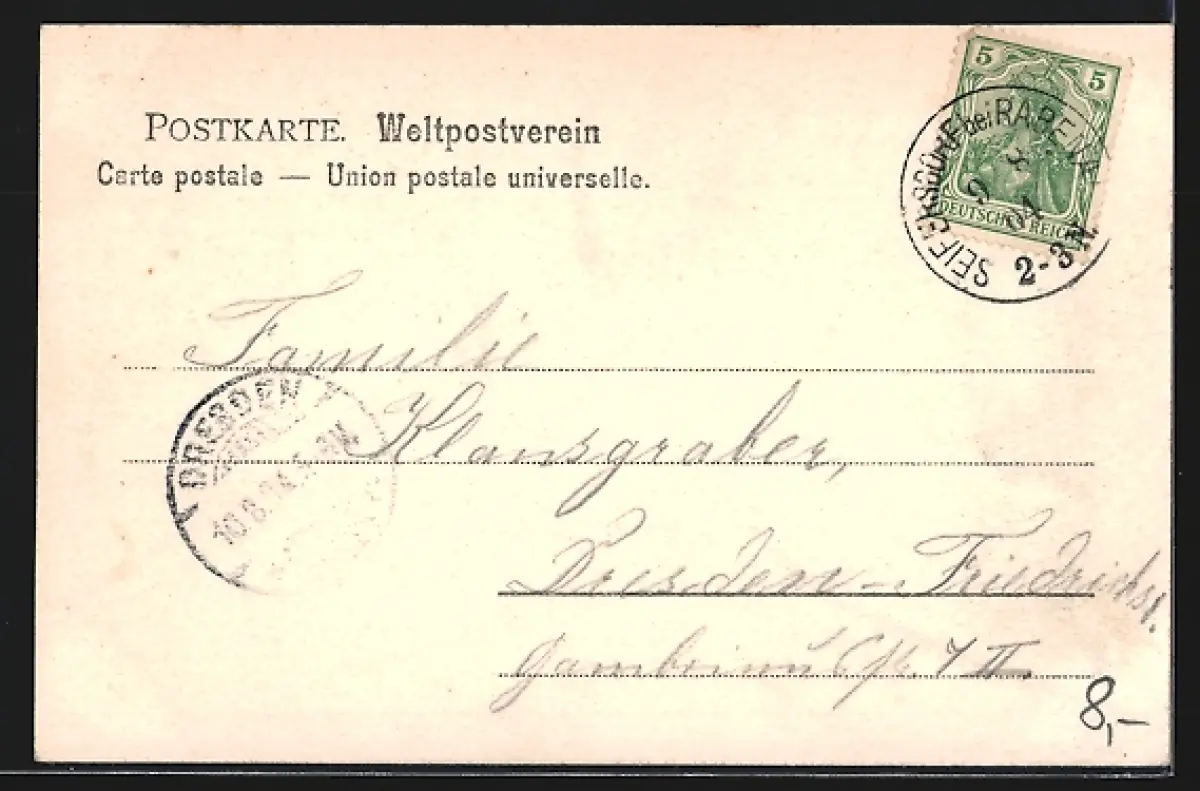 POSTKARTE. Weltpostverein
Carte postale — Union postale universelle.
5 5
DEUTSCHES REICH
SEIFERSDORF bei RABENAU
9 8 04
2-3 N.
Familie
DRESDEN
10.8.04
Klansgraber,
Dresden-Friedrichst.
Gambrinusstr. 7 II.
8,-